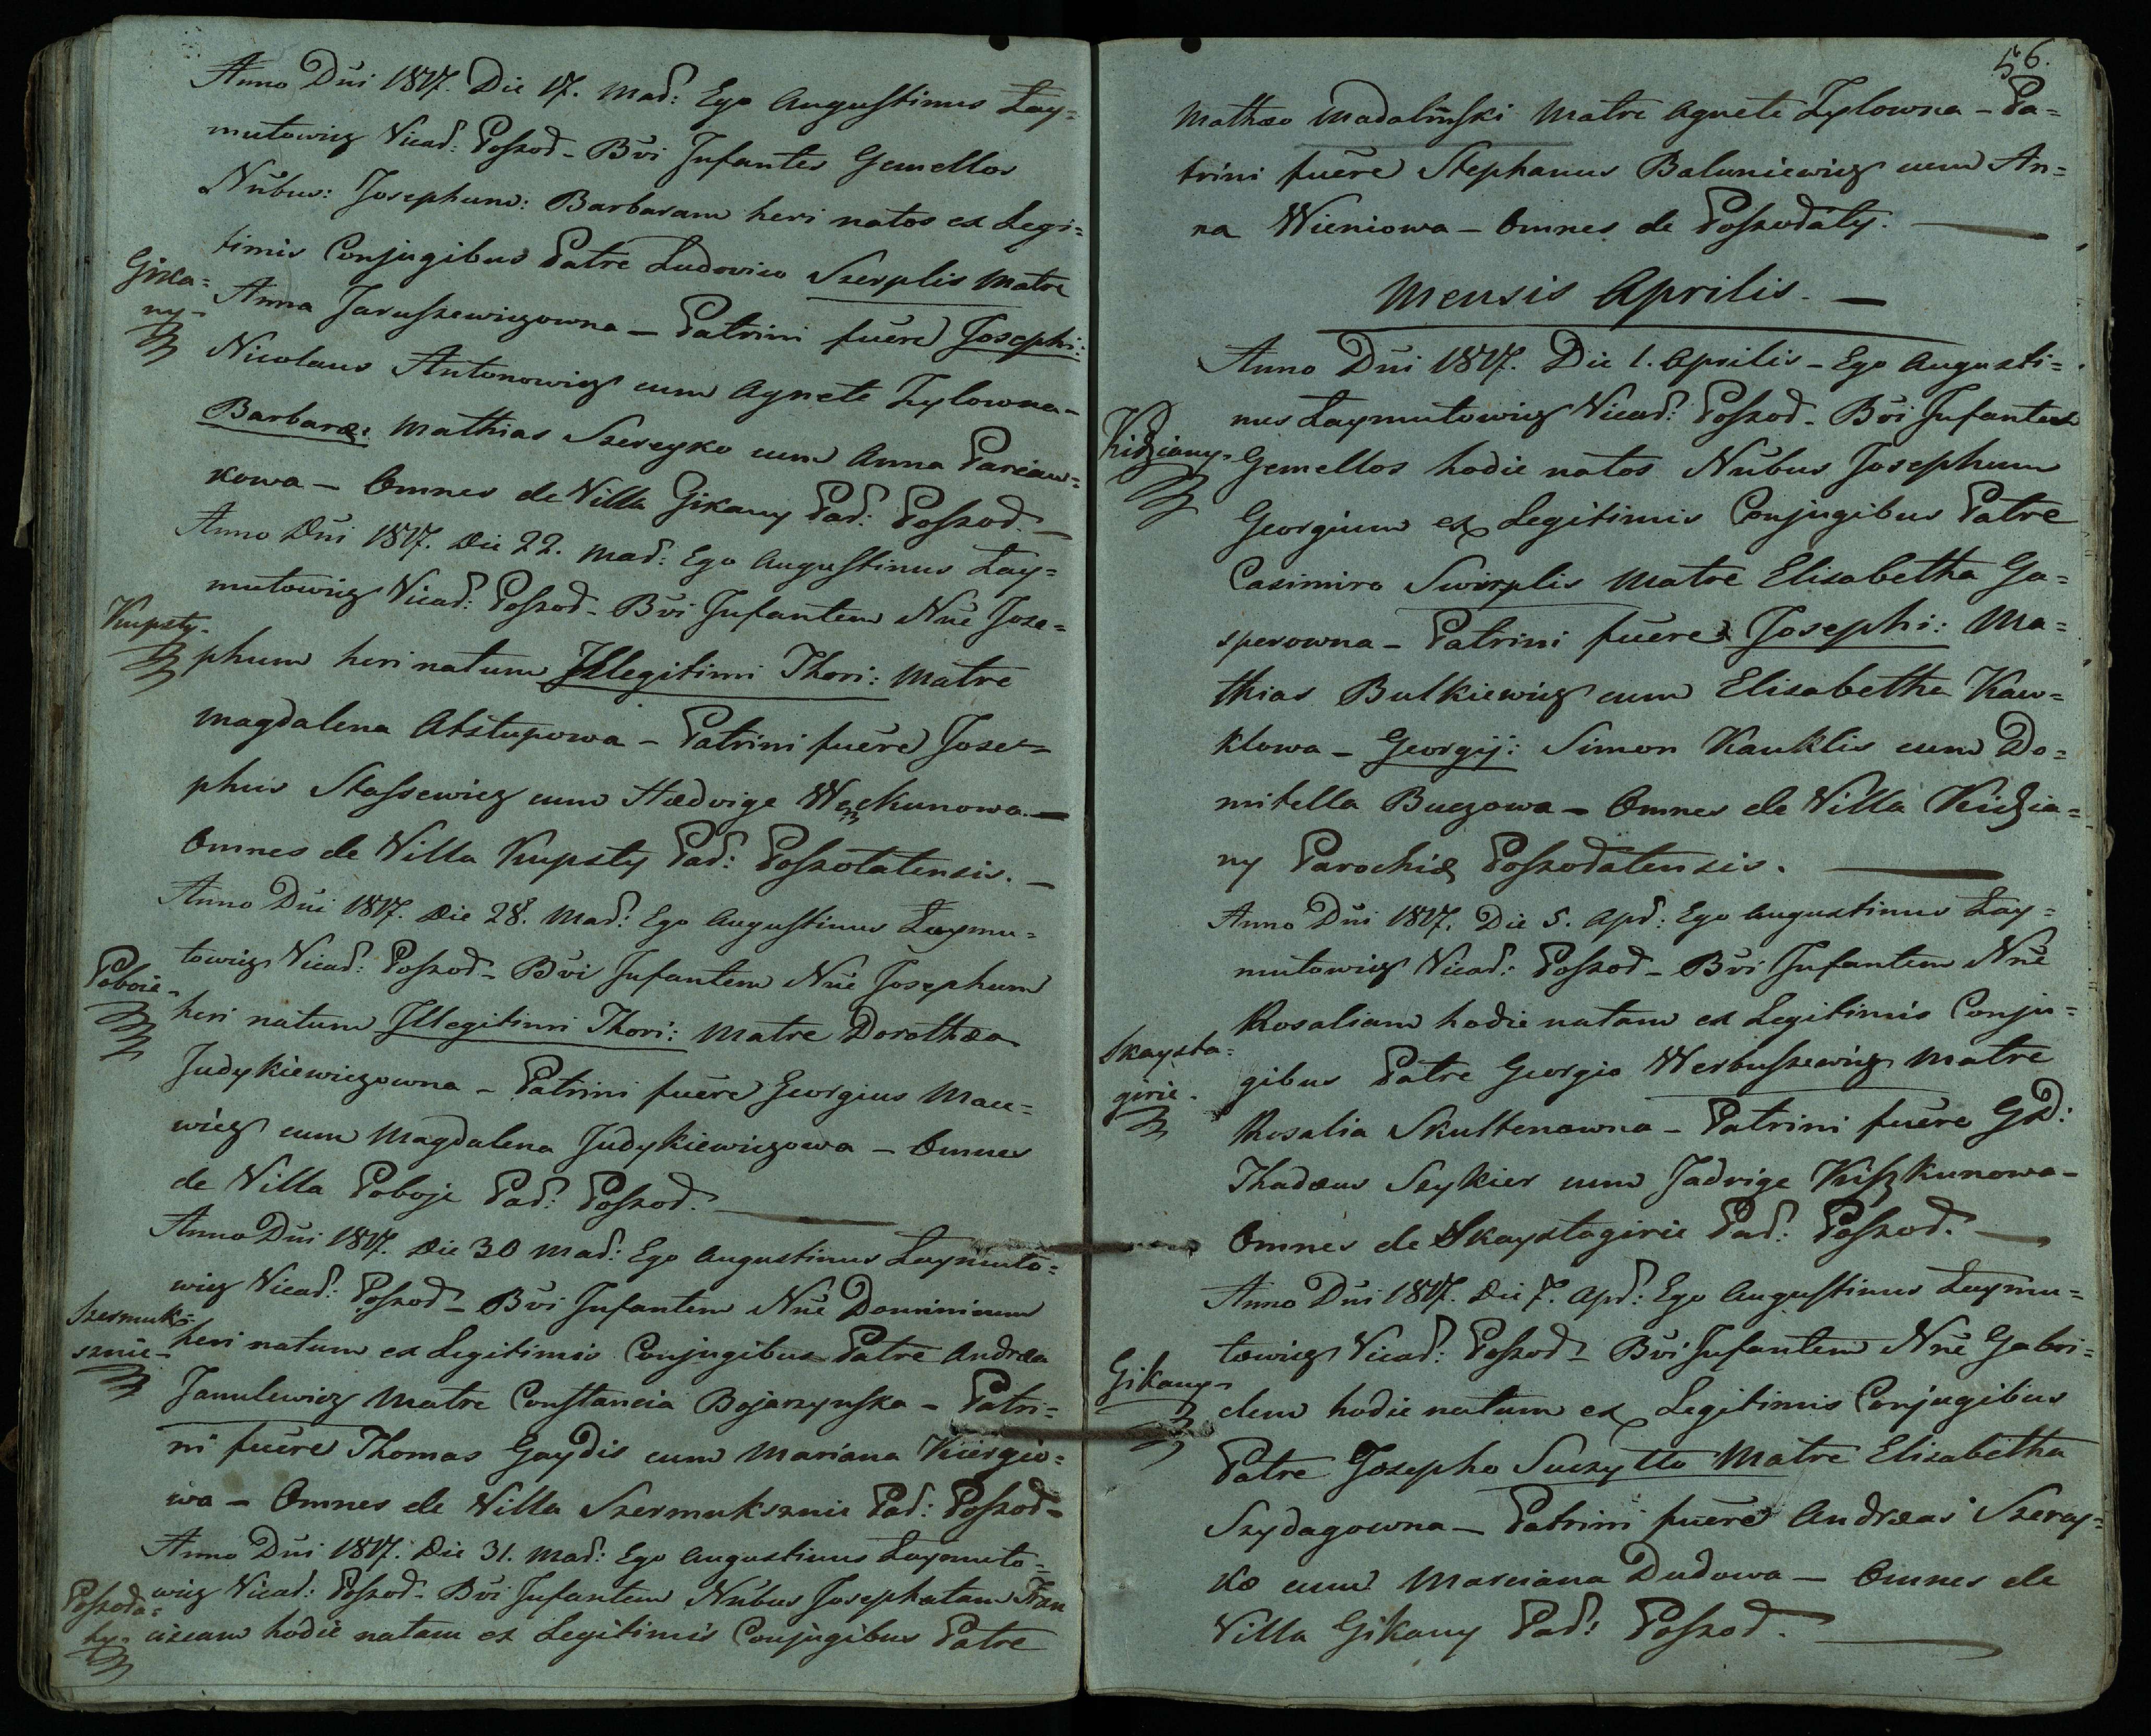 Anno Dni 1817. Die 17. Mar: Ego Augustinus Lay=
mutowicz Vicar: Poszod - Bvi Infantes Gemellos
Nnbus: Josephum: Barbaram heri natos ex Legi=
timis Conjugibus Patre Ludovico Szerplis Matre
Gika=
ny-
Anna Jaruszewiczowna - Patrini fuere Josephi:
Nicolaus Antonowicz cum Agnete Zylowna -
Barbaræ: Mathias Szereyko cum Anna Parciaw=
kowa - Omnes de Villa Gikany Par: Poszod. -
Anno Dni 1817. Die 22. Mar: Ego Augustinus Lay=
mutowicz Vicar: Poszod - Bvi Infantem Nne Jose=
Kupsty-
phum heri natum Illegitimi Thori: Matre
Magdalena Abstupowa - Patrini fuere Jose=
phus Stassewicz cum Hedvige Weckunowa. -
Omnes de Villa Kupsty Par: Poszotatensis. -
Anno Dni 1817. Die 28. Mar: Ego Augustinus Laymu=
towicz Vicar: Poszod - Bvi Infantem Nne Josephum
Poboie-
heri natum Illegitimi Thori: Matre Dorothæa
Judykiewiczowna - Patrini fuere Georgius Mac=
wicz cum Magdalena Judykiewiczowa - Omnes
de Villa Poboje Par: Poszod. -
Anno Dni 1817. Die 30 Mar: Ego Augustinus Laymuto=
wicz Vicar: Poszod - Bvi Infantem Nne Dominicum
Szermuk=
sznie-
heri natum ex Legitimis Conjugibus Patre Andrea
Janulewicz Matre Constancia Bojarzynska - Patri=
ni fuere Thomas Gaydis cum Mariana Kiergio=
wa - Omnes de Villa Szermuksznie Par: Poszod -
Anno Dni 1817. Die 31. Mar: Ego Augustinus Laymuto=
wicz Vicar: Poszod - Bvi Infantem Nnbus Josephatam Fran
Poszoda=
ty-
ciscam hodie natam ex Legitimis Conjugibus Patre
56.
Mathæo Madalinski Matre Agnete Zylowna - Pa=
trini fuere Stephanus Baluniewicz cum An=
na Wieniowa - Omnes de Poszodaty. -
Mensis Aprilis. -
Anno Dni 1817. Die 1. Aprilis - Ego Augusti=
nus Laymutowicz Vicar: Poszod - Bvi Infantes
Kidziany-
Gemellos hodie natos Nnbus Josephum
Georgium ex Legitimis Conjugibus Patre
Casimiro Swirplis Matre Elisabetha Ga=
sperowna - Patrini fuere Josephi: Ma=
thias Bulkiewicz cum Elisabetha Kaw=
klowa - Georgij: Simon Kauklis cum Do=
mitella Buczowa - Omnes de Villa Kidzia=
ny Parochiæ Poszodatensis. -
Anno Dni 1817. Die 5. Apr: Ego Augustinus Lay=
mutowicz Vicar: Poszod - Bvi Infantem Nne
Rosaliam hodie natam ex Legitimis Conju=
Skaysta=
girie-
gibus Patre Georgio Werbuszewicz Matre
Rosalia Skultenowna - Patrini fuere Gd:
Thadæus Szykier cum Jadvige Kiszkunowa -
Omnes de Skaystagirie Par: Poszod. -
Anno Dni 1817. Die 7. Apr: Ego Augustinus Laymu=
towicz Vicar: Poszod - Bvi Infantem Nne Gabri=
Gikany-
elem hodie natum ex Legitimis Conjugibus
Patre Josepho Suszytto Matre Elisabetha
Szydagowna - Patrini fuere Andreas Szeray=
ko cum Marciana Dudowa - Omnes de
Villa Gikany Par: Poszod. -